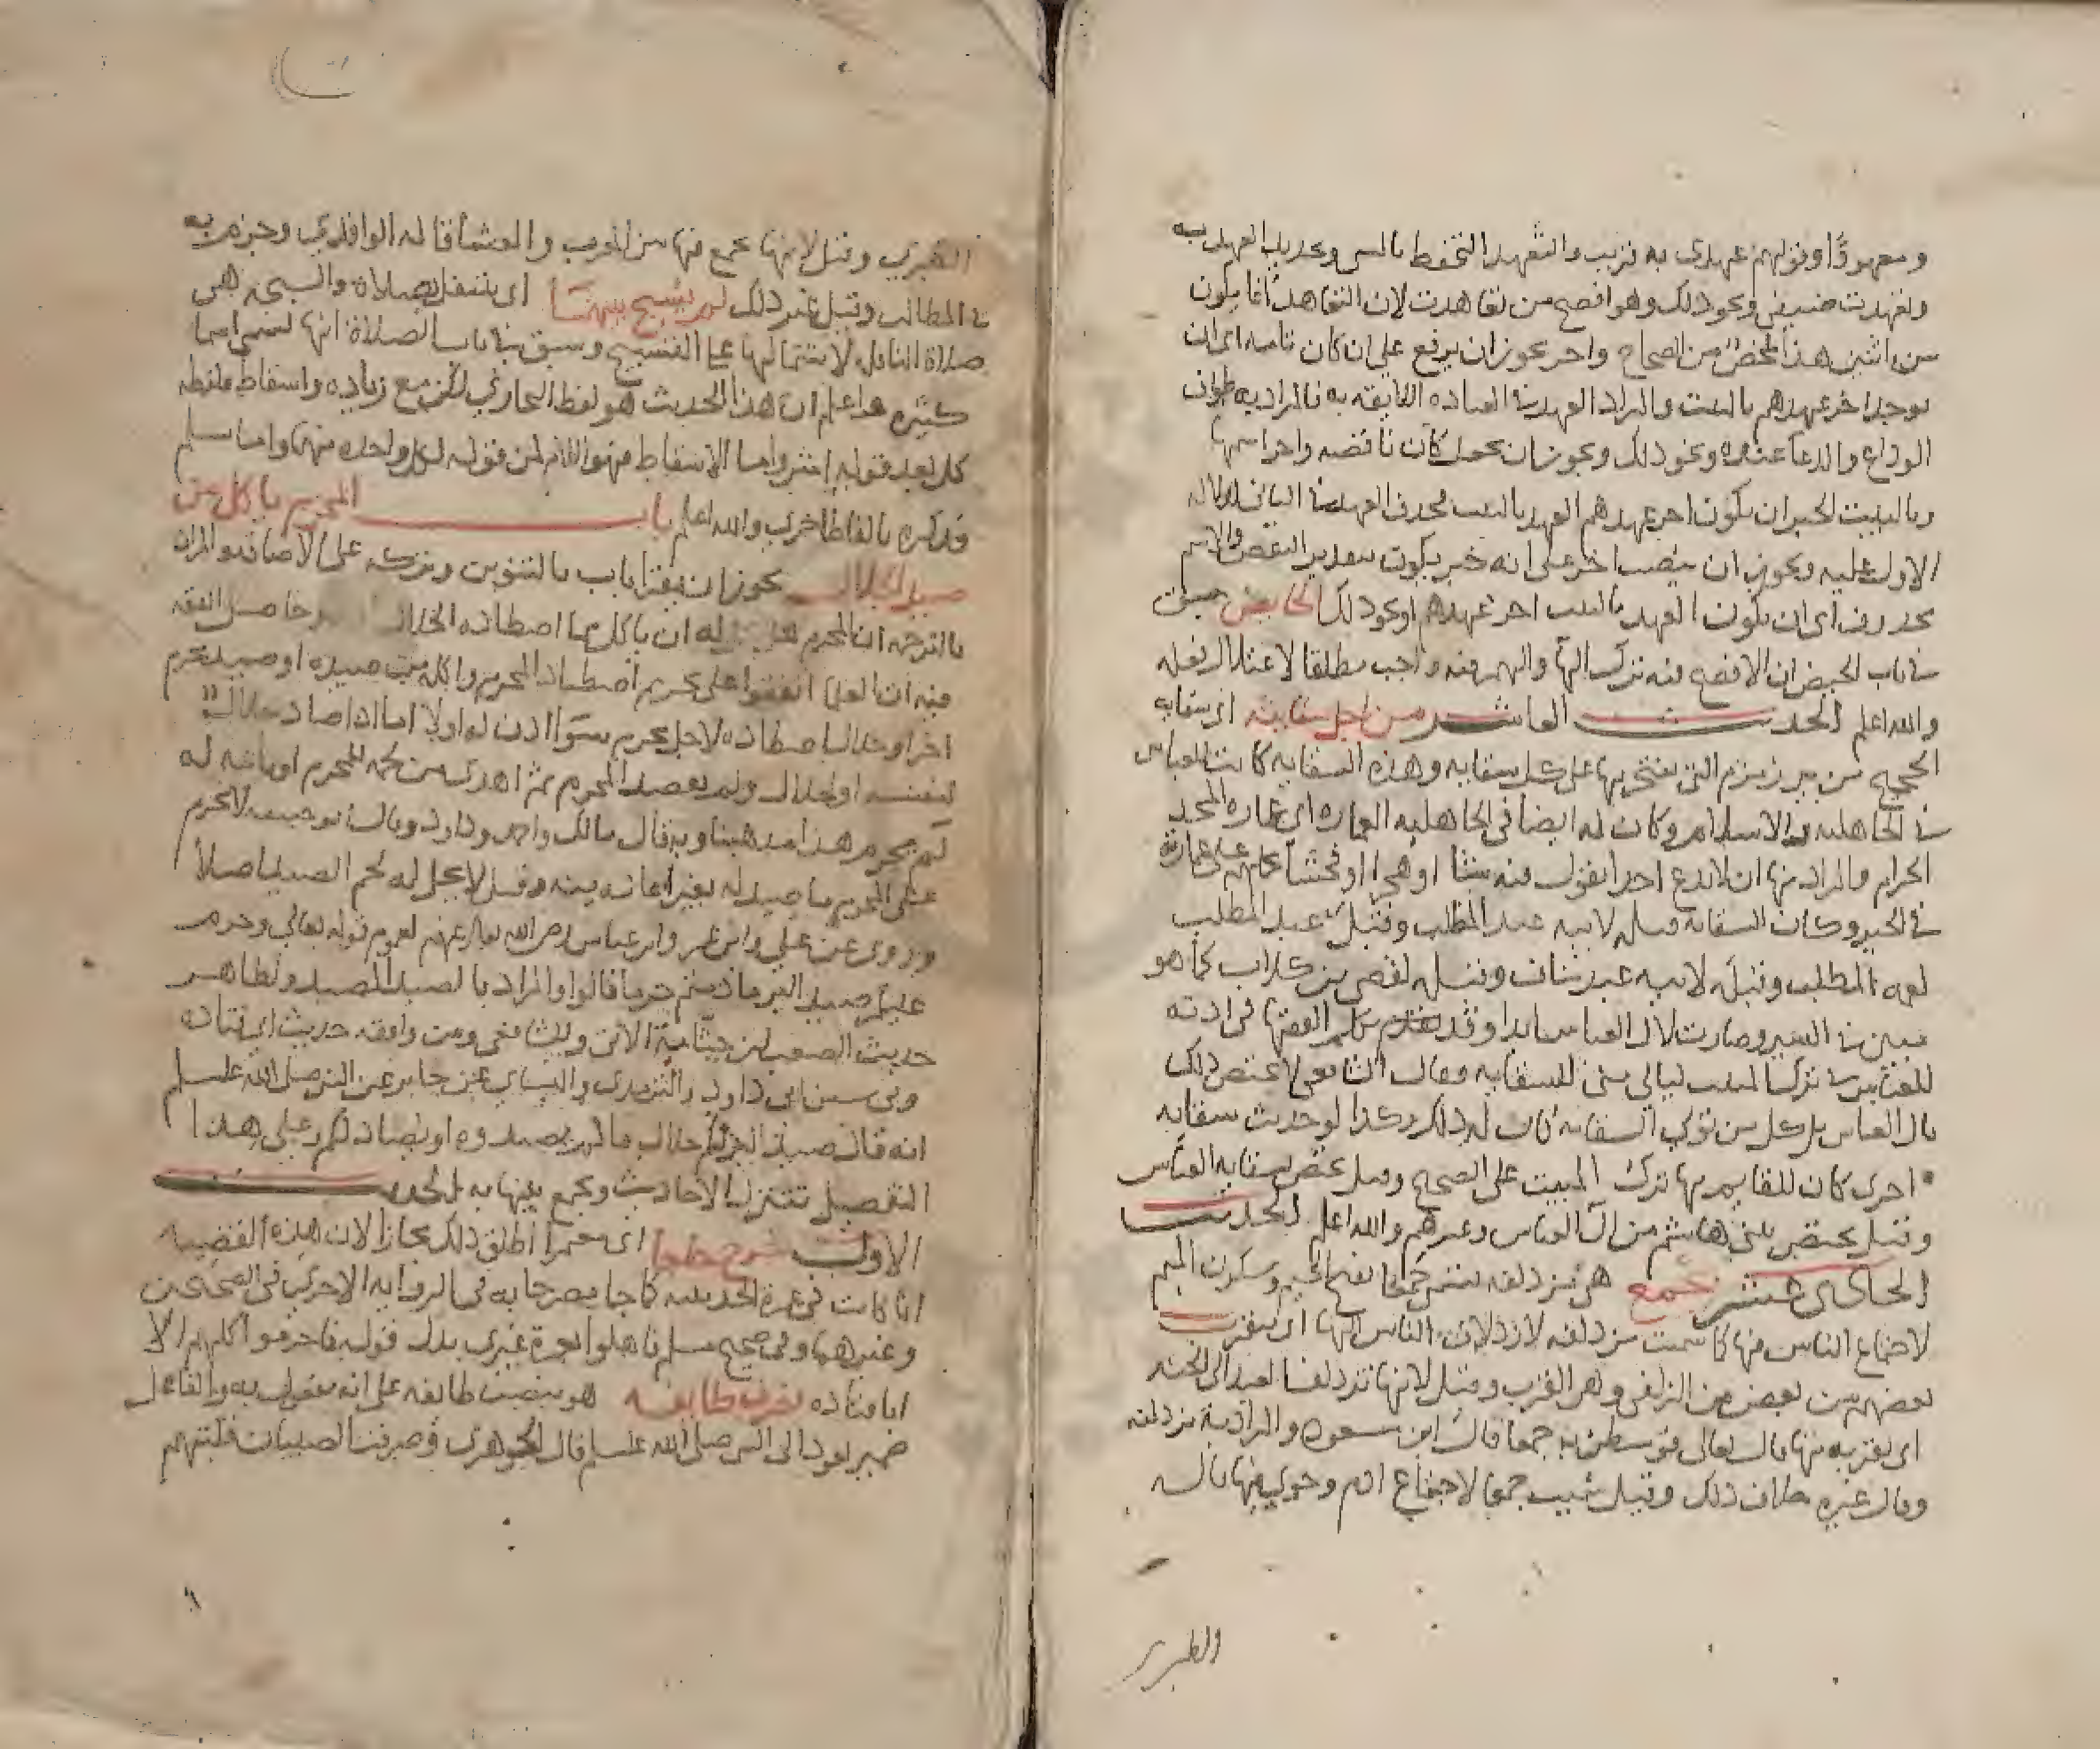 ومعهودًا وقولهم عهدي به قريب والتعهد التحفظ بالشي وتجديد العهد به
وتعهدت ضيعتي ونحو ذلك وهو افصح من تعاهدت لان التعاهد انما يكون
من اثنين هذا ملخص من الصحاح واخر يجوز ان يرفع على ان كان تامه اي ان
يوجد اخر عهدهم بالبيت والمراد العهد في العباده اللايقه به فالمراد به طواف
الوداع والدعا عنده ونحو ذلك ويجوز ان يجعل كان ناقصه واخر اسمها
وبالبيت الخبر ان يكون اخر عهدهم العهد بالبيت فحذف العهد من الثاني لدلاله
الاول عليه ويجوز ان ينصب اخر على انه خبر يكون بتقدير النقص والاسم
محذوف اي ان يكون العهد بالبيت اخر عهدهم او نحو ذلك الحايض سبق
في باب الحيض ان الافصح فيه ترك الها والامر فيه واجب مطلقا
والله اعلم الحديث العاشر من اجل سقايته اي سقايه
الحجيج من بير زمزم التي يفتخر بها على كل سقايه وهذه السقايه كانت للعباس
في الجاهليه والاسلام وكان له ايضا في الجاهليه العماره اي عماره المسجد
الحرام والمراد بها ان لا يدع احدا يقول فيه شتما او هجرا او فحشا على عمارته
في الخير وكان السقايه قبله لابيه عبد المطلب وقبل عبد المطلب
لعمه المطلب وقبله لابيه عبد مناف وقبله لقصي بن كلاب كما هو
مبين في السير وصارت لال العباس ابدا وقد تقدم كلام الفقها في ارادته
للعباس في ترك المبيت ليالي منى للسقايه وقال الشافعي لا يختص ذلك
بال العباس بل كل من تولى السقايه كان له ذلك وكذا لو حدثت سقايه
اخرى كان للقايم بها ترك المبيت على الصحيح وقيل يختص بسقايه العباس
وقيل يختص ببني هاشم من ال العباس وغيرهم والله اعلم الحديث
الحادي عشر بجمع هي مزدلفه تسمى جمعا بفتح الجيم وسكون الميم
لاجتماع الناس فيها كما سميت مزدلفه لازدلاف الناس اليها اي يقرب
بعضهم من بعض من الزلفى وهو القرب وقيل لانها تزدلف العبد الى الجنه
اي تقربه منها قال تعالى فوسطن به جمعا قال ابن مسعود والمراد به مزدلفه
وقال غيره خلاف ذلك وقيل سميت جمعا لاجتماع ادم وحوى فيها قاله
والطبري
الطبري وقيل لانها يجمع فيها بين المغرب والعشا قاله الواقدي وجزم به
في المطالب وقيل غير ذلك لم يسبح بينهما اي يتنفل بصلاة والسبحه هي
صلاة النافلة لاشتمالها على التسبيح وسبق في باب الصلاة انها تسمى اسما
كثيره واعلم ان هذا الحديث هو لفظ البخاري لكن مع زياده واسقاط فلفظه
كل بعد قوله اثر واما الاسقاط فهو اللام من قوله لكل واحده منهما واما مسلم
فذكره بالفاظ اخرى والله اعلم باب المحرم ياكل من
صيد الحلال يجوز ان يقرا باب بالتنوين وتركه على الاضافه والمراد
بالترجمه ان المحرم له ان ياكل مما اصطاده الحلال وحاصل الفقه
فيه ان العلما اتفقوا على تحريم اصطياد المحرم واكله من صيده او صيد محرم
اخر او حلال اصطاده لاجل محرم سوا اذن له اولا اما اذا صاد حلال
لنفسه او لحلال ولم يقصد المحرم ثم اهدى من لحمه للمحرم او باعه له
لم يحرم هذا مذهبنا وبه قال مالك واحمد وداود وقال ابو حنيفه لا يحرم
على المحرم ما صيد له بغير اعانه منه وقيل لا يحل له لحم الصيد اصلا
وروى عن علي وابن عمر وابن عباس رضي الله تعالى عنهم لعموم قوله تعالى وحرم
عليكم صيد البر ما دمتم حرما قالوا والمراد بالصيد المصيد ولظاهر
حديث الصعب بن جثامة الاتي وللشافعي ومن وافقه حديث ابي قتاده
وفي سنن ابي داود والترمذي والنساي عن جابر عن النبي صلى الله عليه وسلم
انه قال صيد البر لكم حلال ما لم تصيدوه او يصاد لكم وعلى هذا
التفصيل تتنزل الاحاديث ويجمع بينها به الحديث
الاول خرج حاجا اي معتمرا اطلق ذلك مجازا لان هذه القضيه
انما كانت في عمرة الحديبيه كما جا مصرحا به في الروايه الاخرى في الصحيحين
وغيرهما وفي صحيح مسلم فاهلوا بعمرة غيري بدل قوله فاحرموا كلهم الا
ابا قتاده فصرف طايفه هو بنصب طايفه على انه مفعول به والفاعل
ضمير يعود الى النبي صلى الله عليه وسلم قال الجوهري وصرفت الصبيان قلبتهم